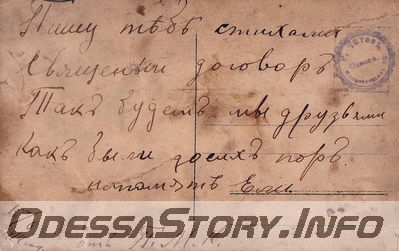 Пишу тѣбѣ стихами
Священый договоръ
Такъ будемъ мы друзьями
Какъ были досихъ поръ.
напомять
отъ
OdessaStory.Info